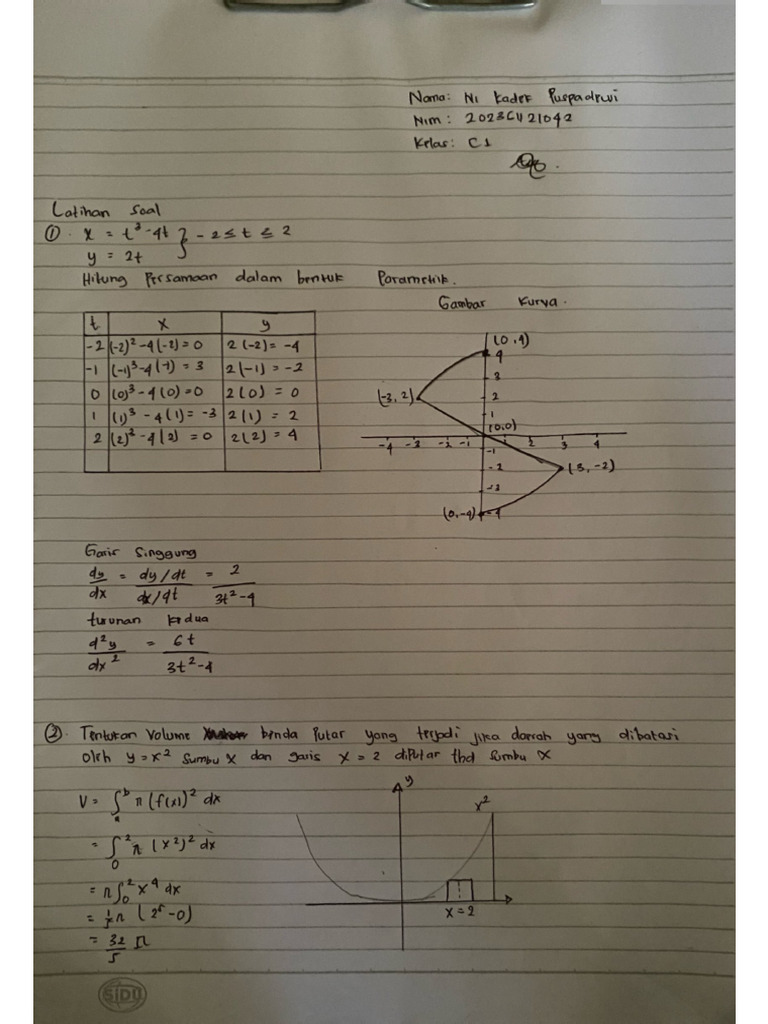 Nama: Ni Kadek Puspadewi
Nim: 2023CV21042
Kelas: C1
Latihan Soal
① x = t³-4t } -2 ≤ t ≤ 2
y = 2t
Hitung Persamaan dalam bentuk Parametrik.
Gambar Kurva.
t | x | y
-2 | (-2)²-4(-2)=0 | 2(-2)= -4
-1 | (-1)³-4(-1) = 3 | 2(-1) = -2
0 | (0)³-4(0)=0 | 2(0) = 0
1 | (1)³ - 4(1) = -3 | 2(1) = 2
2 | (2)²-4(2) = 0 | 2(2) = 4
(0,4)
4
3
(-3,2) 2
1
(0,0)
-4 -3 -2 -1 1 2 3 4
-1
-2 (3,-2)
-3
(0,-4) -4
Garis Singgung
dy/dx = (dy/dt)/(dx/dt) = 2/(3t²-4)
turunan kedua
d²y/dx² = 6t/(3t²-4)
②. Tentukan Volume benda Putar yang terjadi jika daerah yang dibatasi
oleh y=x² sumbu x dan garis x = 2 diputar thd sumbu x
y
x²
V = ∫ₐᵇ π(f(x))² dx
= ∫₀² π (x²)² dx
= π∫₀² x⁴ dx
x=2
= 1/5 π (2⁵-0)
= 32/5 π
SIDU